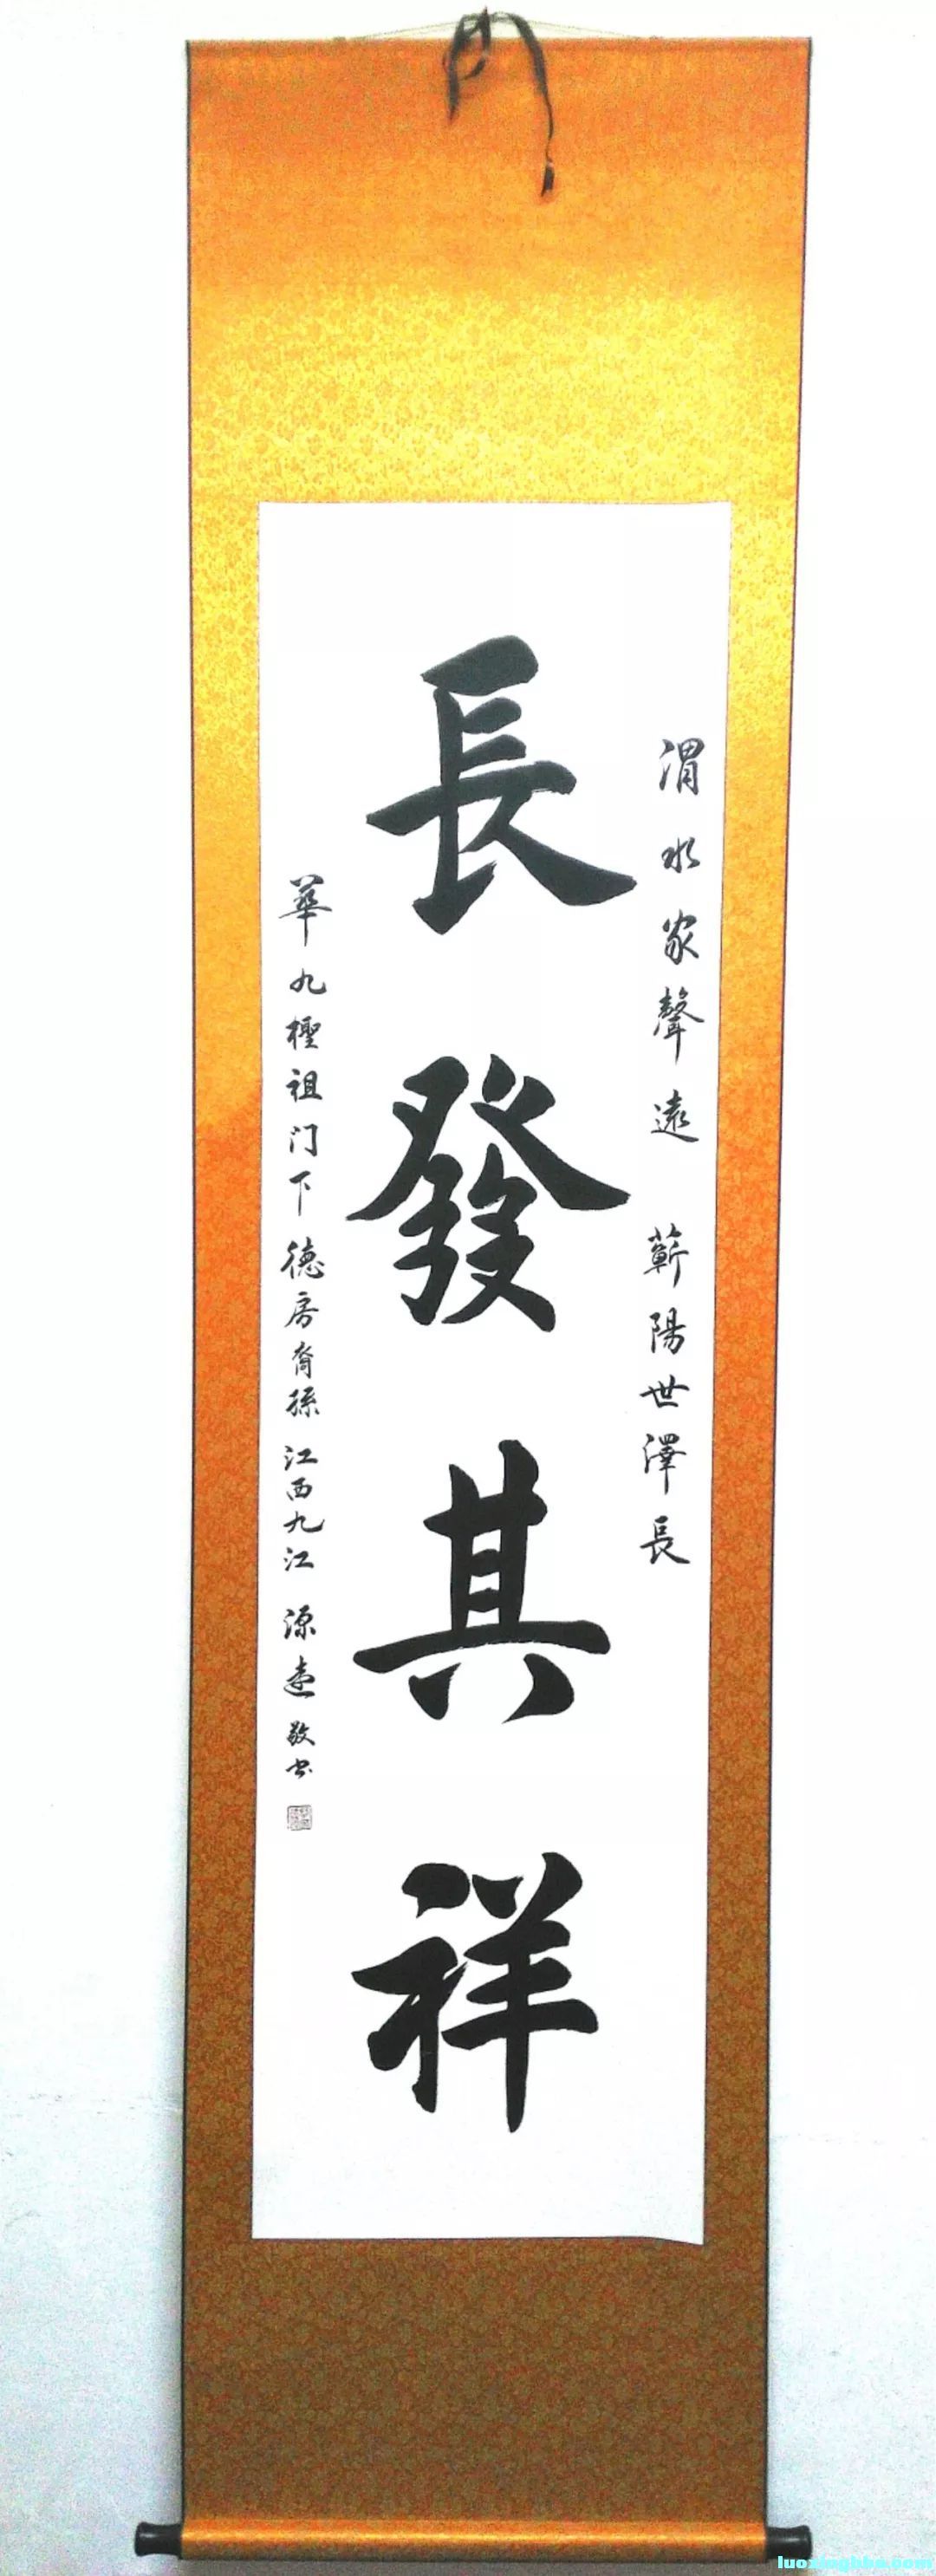 渭水家聲遠 蘄陽世澤長
長發其祥
華九檉祖门下 德房裔孫 江西九江 源 敬书
luoxinghba.com